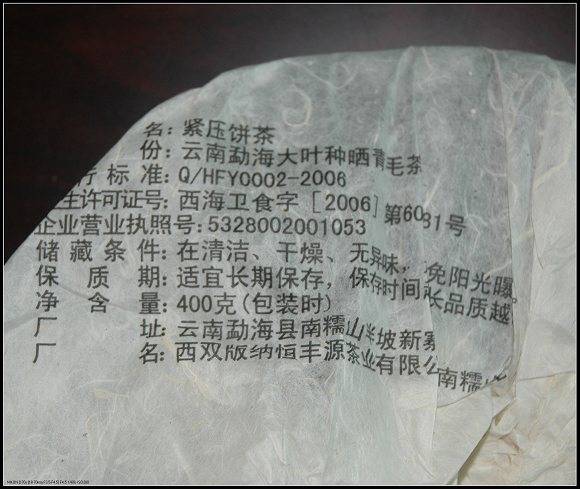 名: 紧压饼茶
份: 云南勐海大叶种晒青毛茶
行标准: Q/HFY0002-2006
生许可证号: 西海卫食字 [2006] 第6081号
企业营业执照号: 5328002001053
储藏条件: 在清洁、干燥、无异味, 免阳光曝
保质期: 适宜长期保存, 保存时间 长品质越
净含量: 400克(包装时)
厂址: 云南勐海县南糯山半坡新寨
厂名: 西双版纳恒丰源茶业有限公
南糯